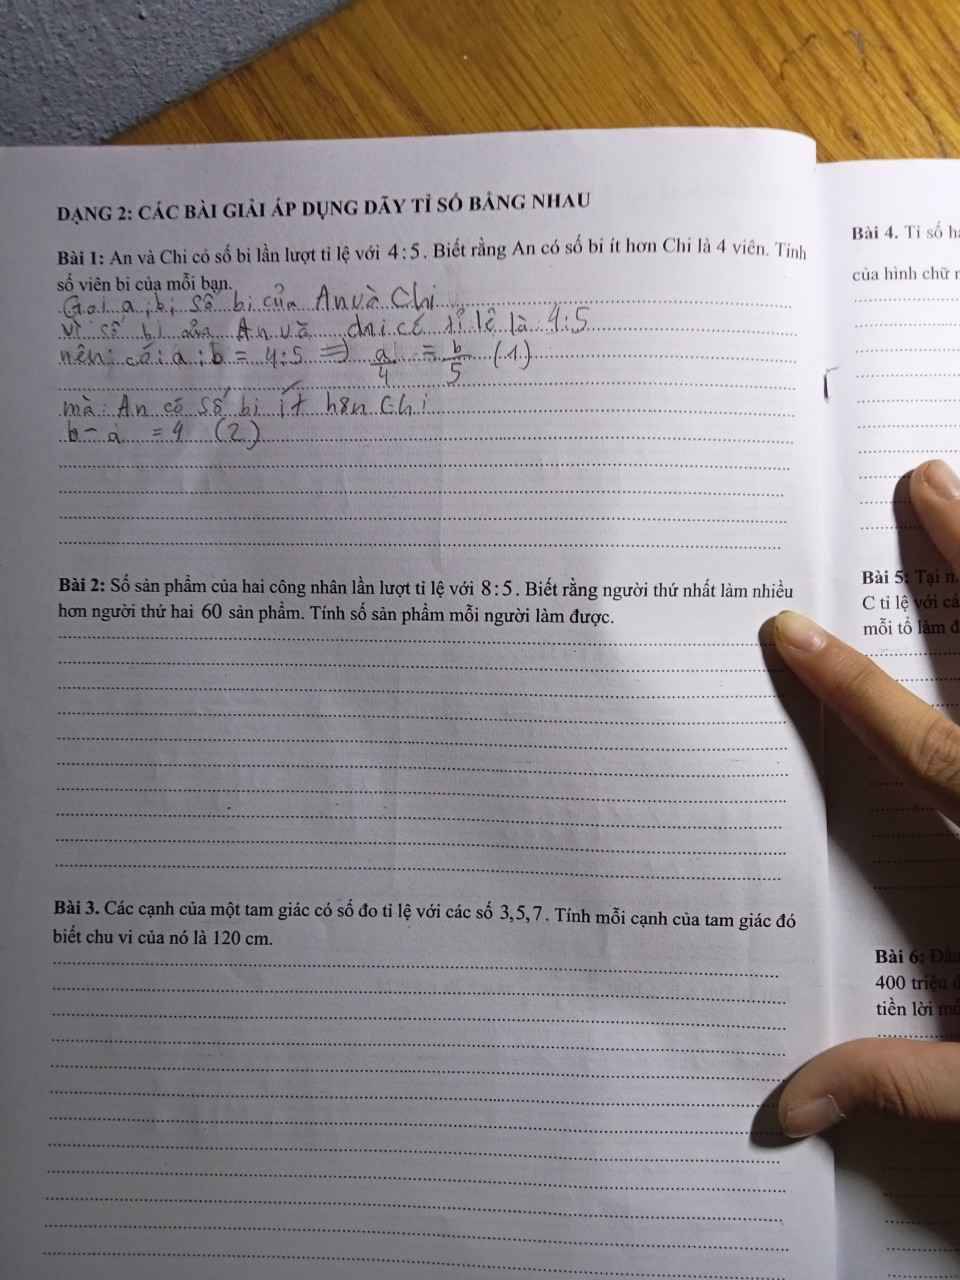 DẠNG 2: CÁC BÀI GIẢI ÁP DỤNG DÃY TỈ SỐ BẰNG NHAU
Bài 1: An và Chi có số bi lần lượt tỉ lệ với 4:5. Biết rằng An có số bi ít hơn Chi là 4 viên. Tính
số viên bi của mỗi bạn.
Gọi a; b; số bi của An và Chi
Vì số bi của An và chi có tỉ lệ là 4:5
nên: có: a; b = 4:5 ⇒ a/4 = b/5 (1)
mà: An có số bi ít hơn Chi
b - a = 4 (2)
Bài 2: Số sản phẩm của hai công nhân lần lượt tỉ lệ với 8:5. Biết rằng người thứ nhất làm nhiều
hơn người thứ hai 60 sản phẩm. Tính số sản phẩm mỗi người làm được.
Bài 3. Các cạnh của một tam giác có số đo tỉ lệ với các số 3,5,7. Tính mỗi cạnh của tam giác đó
biết chu vi của nó là 120 cm.
Bài 4. Tỉ số
của hình chữ
Bài 5: Tại
C tỉ lệ với
mỗi tổ làm
Bài 6:
400 triệu
tiền lời